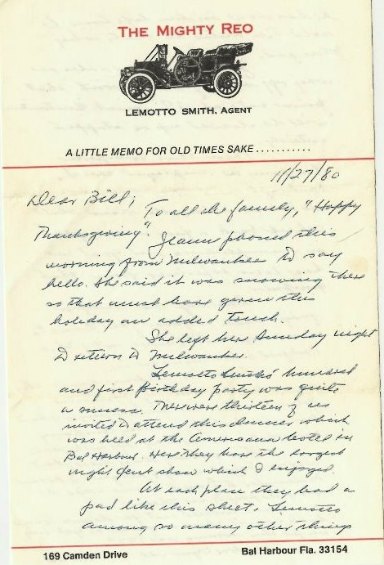 THE MIGHTY REO
LEMOTTO SMITH, AGENT
A LITTLE MEMO FOR OLD TIMES SAKE...........
11/27/80
Dear Bill;
To all the family, "Happy
Thanksgiving". Jeanne phoned this
morning from Milwaukee to say
hello. She said it was snowing there
so that must have given this
holiday an added touch.
She left here Sunday night
to return to Milwaukee.
Lemotto Smiths' hundred
and first Birthday party was quite
a success. There were thirteen of us
invited to attend this dinner which
was held at the Americana hotel in
Bal Harbour. Here they have the longest
night club show which I enjoyed.
At each place they had a
pad like this sheet. Lemotto
among so many other things
169 Camden Drive
Bal Harbour Fla. 33154